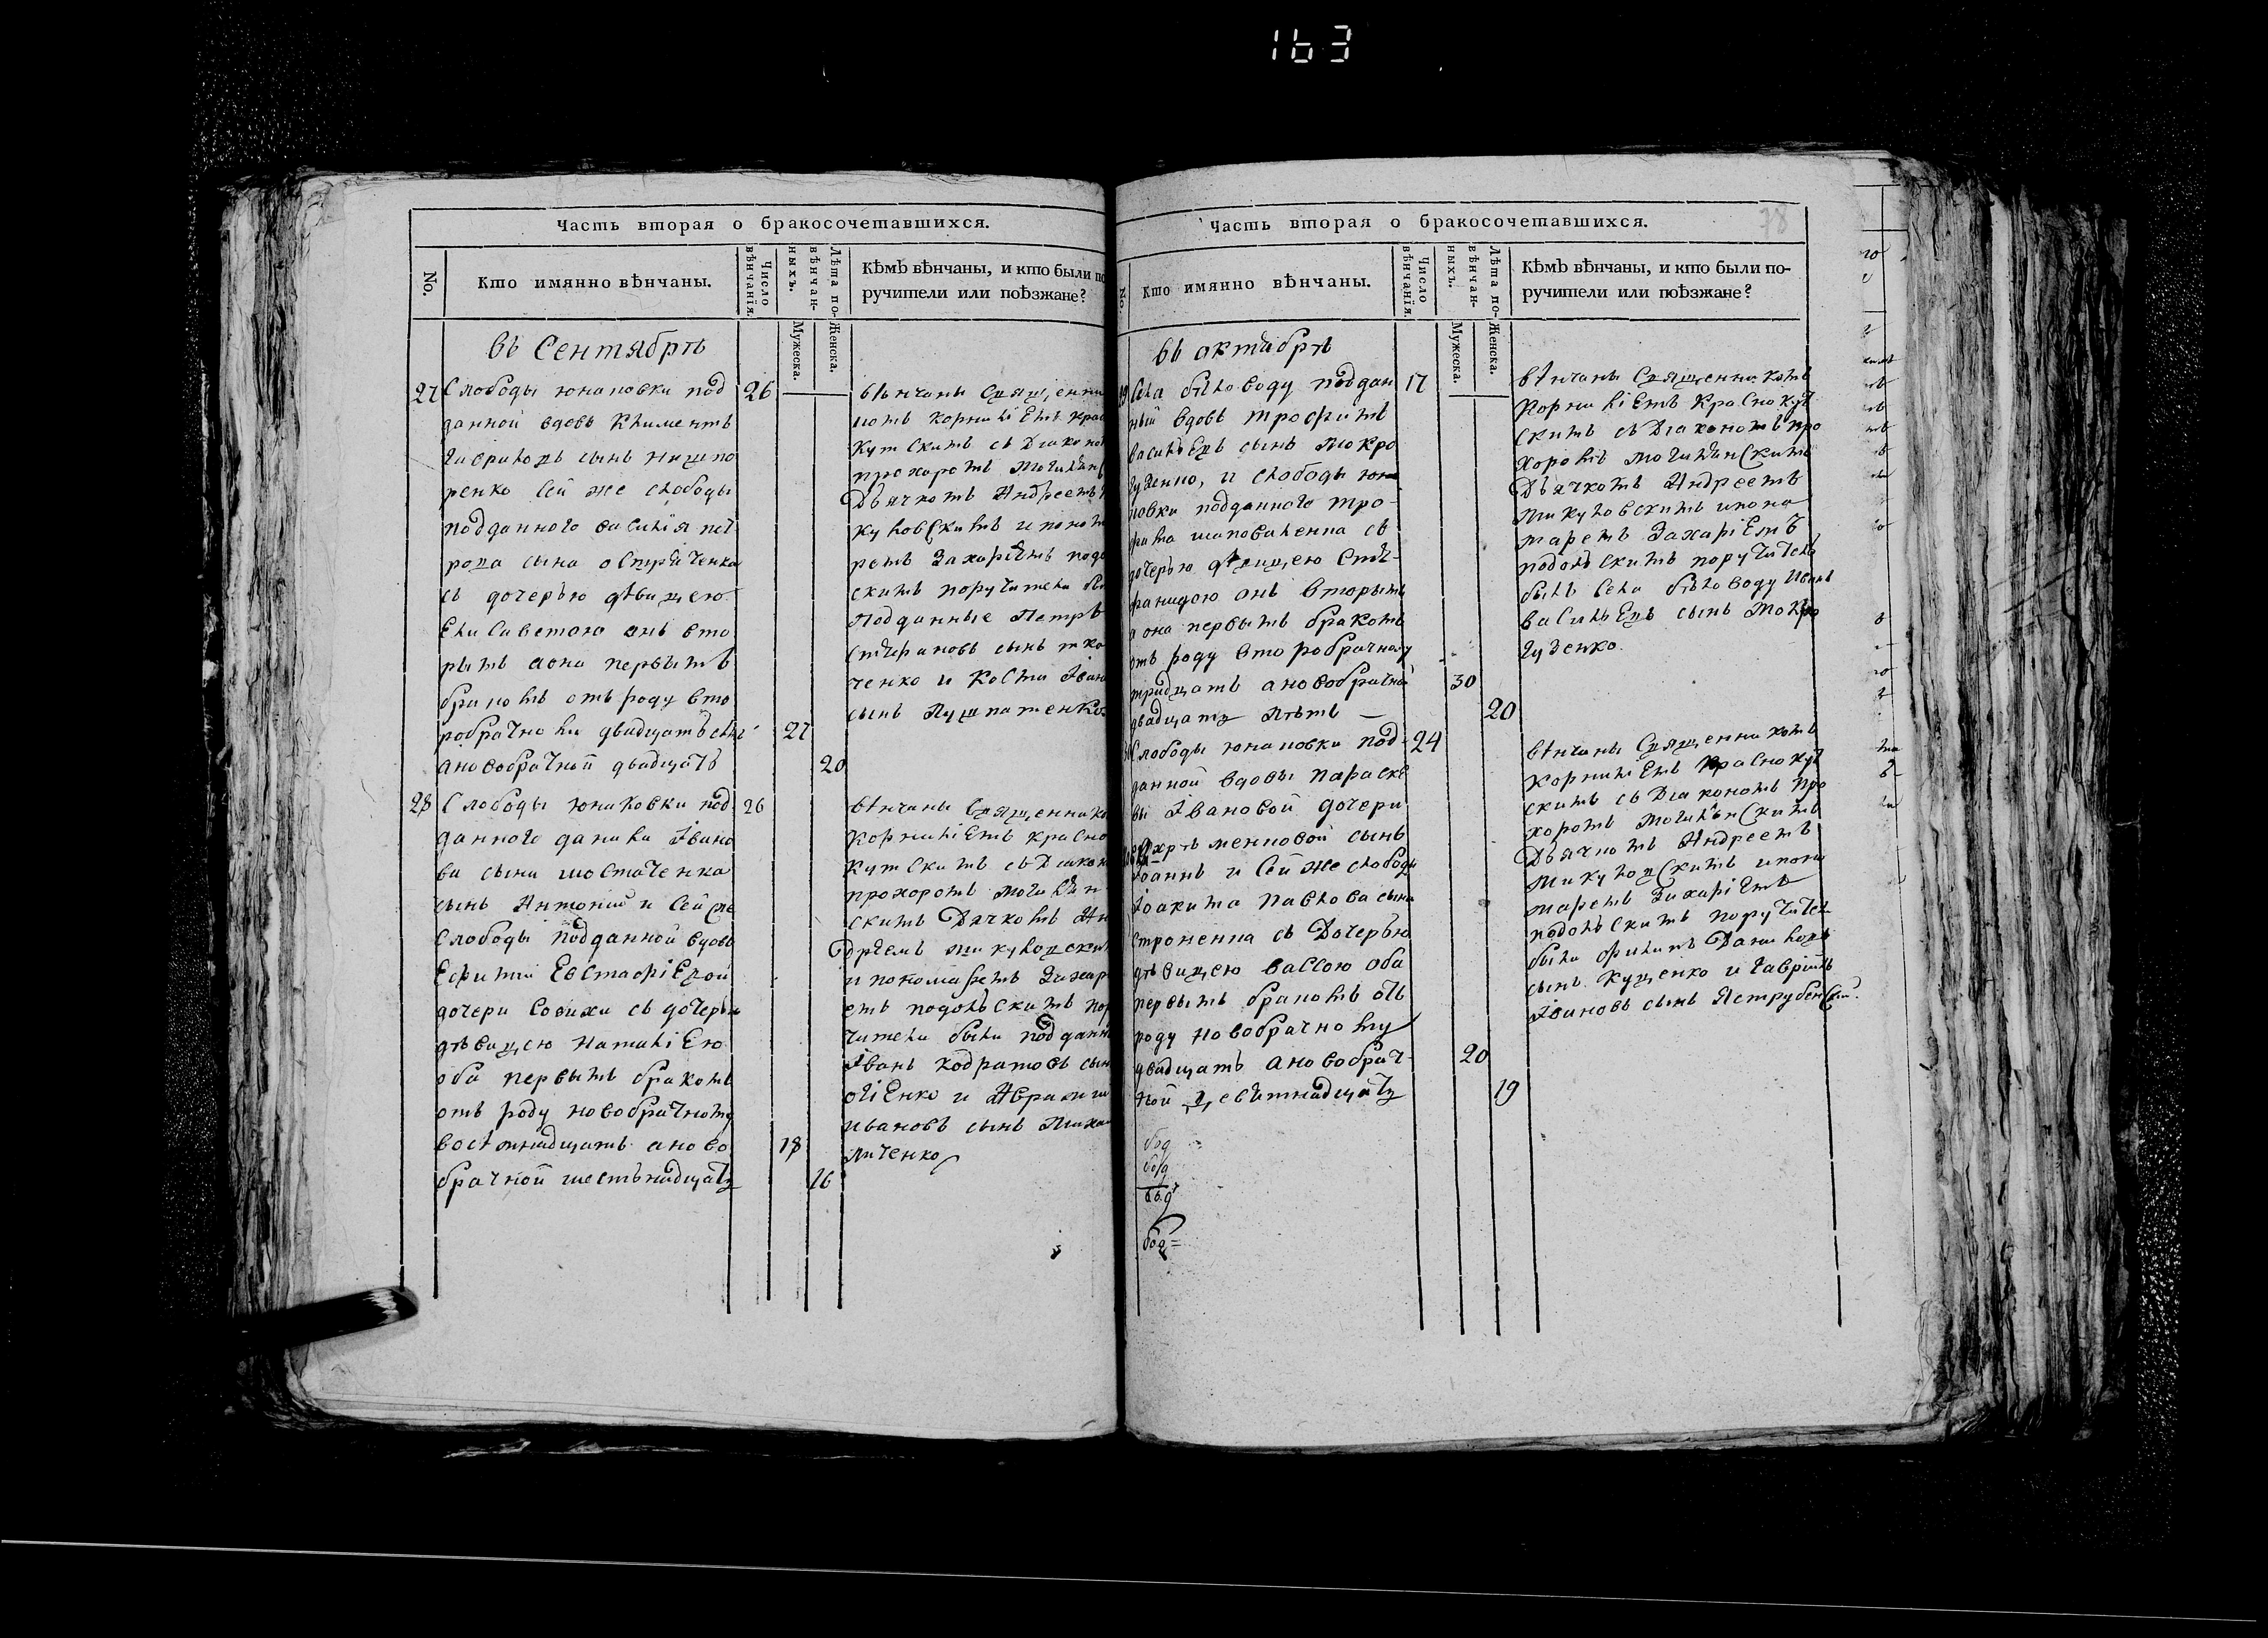 163
Часть вторая о бракосочетавшихся.
No.
Кто имянно вѣнчаны.
Число вѣнчанія.
Лѣта повѣнчанныхъ.
Мужеска.
Женска.
Кѣмъ вѣнчаны, и кто были по
ручители или поѣзжане?
въ Сентябрѣ
27 Слободы юнаковки под 26
данной вдовъ Климентъ
Гавриловъ сынъ
ренко сей же слободы
подданного василія пет
рова сына
съ дочерью дѣвицею
Елисаветою онъ вто
рымъ аона первымъ
бракомъ отъ роду вто
робрачно му двадцать 27
ановобрачной двадцать 20
вѣнчаны Священни
комъ Корниліемъ Крас
кутскимъ съ Диакономъ
прохоромъ Могилян
Дьячкомъ Андреемъ
куловскимъ и поном
ремъ Захаріемъ подо
скимъ поручители
Подданные Петръ
сынъ тка
ченко и Іван
сынъ
28 Слободы юнаковки под 26
данного данила Івано
ва сына шостаченка
сынъ Антоній и Сей же
слободы подданной вдовы
Ефиміи Евстафіевой
дочери Совихи съ дочерью
дѣвицею Наталіею
оба первымъ бракомъ
отъ роду новобрачному
восемнадцать аново 18
брачной шестьнадцать 16
вѣнчаны Священнико
Корниліемъ красно
кутскимъ съ Диакон
прохоромъ Могилян
скимъ Дячкомъ Ан
дреемъ микуловским
и пономаремъ Захар
емъ подольскимъ пор
чители были поддан
Іванъ кодратовъ сын
и
ивановъ сынъ
личенко
78
Часть вторая о бракосочетавшихся.
No.
Кто имянно вѣнчаны.
Число вѣнчанія.
Лѣта повѣнчанныхъ.
Мужеска.
Женска.
Кѣмъ вѣнчаны, и кто были по-
ручители или поѣзжане?
въ октябрѣ
Села бѣловоду поддан 17
ный вдовъ трофимъ
васильевъ сынъ Мокро
гузенко, и слободы юна
ковки подданного тро-
фима шаповаленка съ
дочерью дѣвицею Сте-
фанидою онъ вторымъ
а она первымъ бракомъ
отъ роду второбрачному
тридцать ановобрачной 30
двадцать лѣтъ 20
вѣнчаны Священникомъ
Корниліемъ Краснокут
скимъ съ Диакономъ про
хоромъ Могилянскимъ
Дьячкомъ Андреемъ
микуловскимъ и поно
маремъ Захаріемъ
подольскимъ поручитель
былъ села бѣловоду Иванъ
васильевъ сынъ Мокро
гузенко.
Слободы юнаковки под- 24
данной вдовы параске
вы Івановой дочери
сынъ
Іоаннъ и Сей же слободы
Іоакима павлова сына
съ Дочерью
дѣвицею вассою оба
первымъ бракомъ отъ
роду новобрачному
двадцать ановобрач- 20
ной девятнадцать 19
вѣнчаны Священникомъ
Корниліемъ Краснокут
скимъ съ Диакономъ про
хоромъ Могилянскимъ
Дьячкомъ Андреемъ
микуловскимъ и поно
маремъ Захаріемъ
подольскимъ поручители
были филипъ Даниловъ
сынъ Куценко и Гавріилъ
Івановъ сынъ